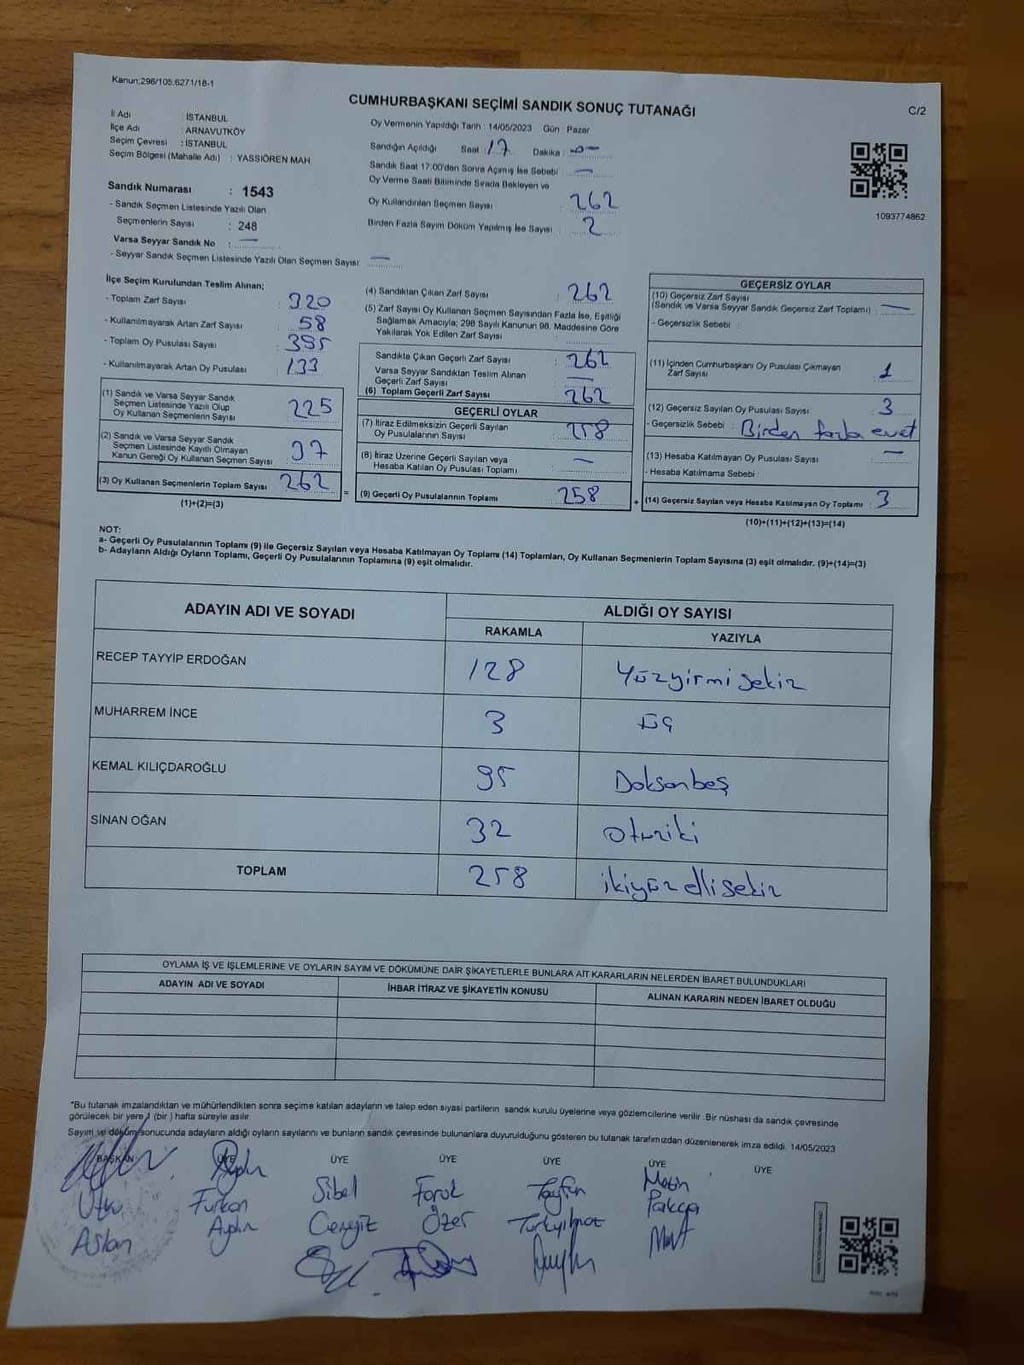 Kanun:298/105,6271/18-1
CUMHURBAŞKANI SEÇİMİ SANDIK SONUÇ TUTANAĞI
C/2
İl Adı : İSTANBUL
İlçe Adı : ARNAVUTKÖY
Seçim Çevresi : İSTANBUL
Seçim Bölgesi (Mahalle Adı) : YASSIÖREN MAH
Sandık Numarası : 1543
- Sandık Seçmen Listesinde Yazılı Olan
Seçmenlerin Sayısı : 248
Varsa Seyyar Sandık No : —
- Seyyar Sandık Seçmen Listesinde Yazılı Olan Seçmen Sayısı: —
Oy Vermenin Yapıldığı Tarih : 14/05/2023 Gün : Pazar
Sandığın Açıldığı Saat : 17 Dakika : —
Sandık Saat 17:00'den Sonra Açılmış İse Sebebi : —
Oy Verme Saati Bitiminde Sırada Bekleyen ve
Oy Kullandırılan Seçmen Sayısı : 262
Birden Fazla Sayım Döküm Yapılmış İse Sayısı : 2
1093774862
İlçe Seçim Kurulundan Teslim Alınan;
- Toplam Zarf Sayısı : 320
- Kullanılmayarak Artan Zarf Sayısı : 58
- Toplam Oy Pusulası Sayısı : 395
- Kullanılmayarak Artan Oy Pusulası : 133
(1) Sandık ve Varsa Seyyar Sandık
Seçmen Listesinde Yazılı Olup
Oy Kullanan Seçmenlerin Sayısı : 225
(2) Sandık ve Varsa Seyyar Sandık
Seçmen Listesinde Kayıtlı Olmayan
Kanun Gereği Oy Kullanan Seçmen Sayısı : 37
(3) Oy Kullanan Seçmenlerin Toplam Sayısı : 262
(1)+(2)=(3)
(4) Sandıktan Çıkan Zarf Sayısı : 262
(5) Zarf Sayısı Oy Kullanan Seçmen Sayısından Fazla İse, Eşitliği
Sağlamak Amacıyla; 298 Sayılı Kanunun 98. Maddesine Göre
Yakılarak Yok Edilen Zarf Sayısı :
Sandıkta Çıkan Geçerli Zarf Sayısı : 262
Varsa Seyyar Sandıktan Teslim Alınan
Geçerli Zarf Sayısı : —
(6) Toplam Geçerli Zarf Sayısı : 262
GEÇERLİ OYLAR
(7) İtiraz Edilmeksizin Geçerli Sayılan
Oy Pusulalarının Sayısı : 258
(8) İtiraz Üzerine Geçerli Sayılan veya
Hesaba Katılan Oy Pusulası Toplamı : —
= (9) Geçerli Oy Pusulalarının Toplamı : 258
GEÇERSİZ OYLAR
(10) Geçersiz Zarf Sayısı
(Sandık ve Varsa Seyyar Sandık Geçersiz Zarf Toplamı) : —
- Geçersizlik Sebebi :
(11) İçinden Cumhurbaşkanı Oy Pusulası Çıkmayan
Zarf Sayısı : 1
(12) Geçersiz Sayılan Oy Pusulası Sayısı : 3
- Geçersizlik Sebebi : Birden fazla evet
(13) Hesaba Katılmayan Oy Pusulası Sayısı : —
- Hesaba Katılmama Sebebi :
+ (14) Geçersiz Sayılan veya Hesaba Katılmayan Oy Toplamı : 3
(10)+(11)+(12)+(13)=(14)
NOT:
a- Geçerli Oy Pusulalarının Toplamı (9) ile Geçersiz Sayılan veya Hesaba Katılmayan Oy Toplamı (14) Toplamları, Oy Kullanan Seçmenlerin Toplam Sayısına (3) eşit olmalıdır. (9)+(14)=(3)
b- Adayların Aldığı Oyların Toplamı, Geçerli Oy Pusulalarının Toplamına (9) eşit olmalıdır.
ADAYIN ADI VE SOYADI
ALDIĞI OY SAYISI
RAKAMLA YAZIYLA
RECEP TAYYİP ERDOĞAN 128 Yüzyirmisekiz
MUHARREM İNCE 3 Üç
KEMAL KILIÇDAROĞLU 95 Doksanbeş
SİNAN OĞAN 32 otuziki
TOPLAM 258 ikiyüzellisekiz
OYLAMA İŞ VE İŞLEMLERİNE VE OYLARIN SAYIM VE DÖKÜMÜNE DAİR ŞİKAYETLERLE BUNLARA AİT KARARLARIN NELERDEN İBARET BULUNDUKLARI
ADAYIN ADI VE SOYADI İHBAR İTİRAZ VE ŞİKAYETİN KONUSU ALINAN KARARIN NEDEN İBARET OLDUĞU
*Bu tutanak imzalandıktan ve mühürlendikten sonra seçime katılan adayların ve talep eden siyasi partilerin sandık kurulu üyelerine veya gözlemcilerine verilir. Bir nüshası da sandık çevresinde
görülecek bir yere 1 (bir) hafta süreyle asılır.
Sayım ve döküm sonucunda adayların aldığı oyların sayılarını ve bunların sandık çevresinde bulunanlara duyurulduğunu gösteren bu tutanak tarafımızdan düzenlenerek imza edildi. 14/05/2023
BAŞKAN ÜYE ÜYE ÜYE ÜYE ÜYE ÜYE
Utku Furkan Sibel Faruk Tayfun Metin
Aslan Aydın Cengiz Özer Türkyılmaz Pakça